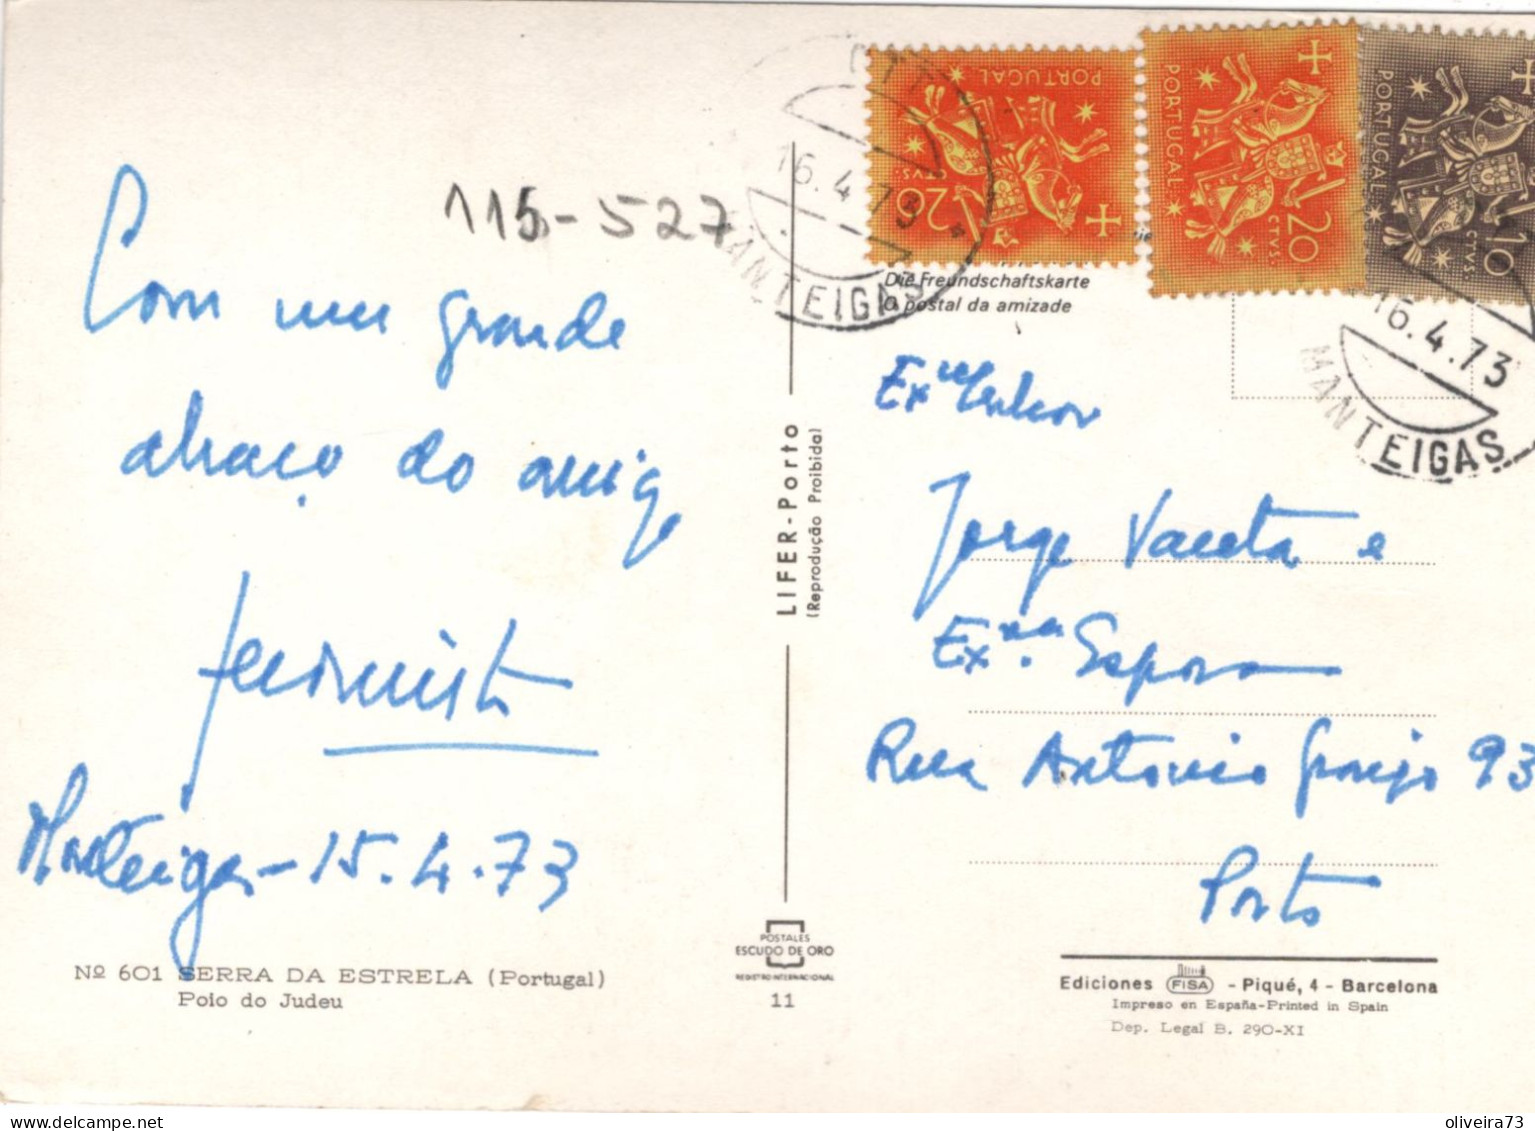 115-527
Com um grande
abraço do amigo
Manteigas - 15.4.73
Nº 601 SERRA DA ESTRELA (Portugal)
Poio do Judeu
LIFER - Porto
(Reprodução Proibida)
POSTALES
ESCUDO DE ORO
REGISTRO INTERNACIONAL
11
CTT
16.4.73
MANTEIGAS
PORTUGAL
20
CTVS.
PORTUGAL
20
CTVS.
PORTUGAL
10
CTVS.
16.4.73
MANTEIGAS
Die Freundschaftskarte
O postal da amizade
Exmo Senhor
Jorge e
Exma. Esposa
Rua Antonio Granjo 93
Porto
Ediciones FISA - Piqué, 4 - Barcelona
Impreso en España-Printed in Spain
Dep. Legal B. 290-XI
oliveira73